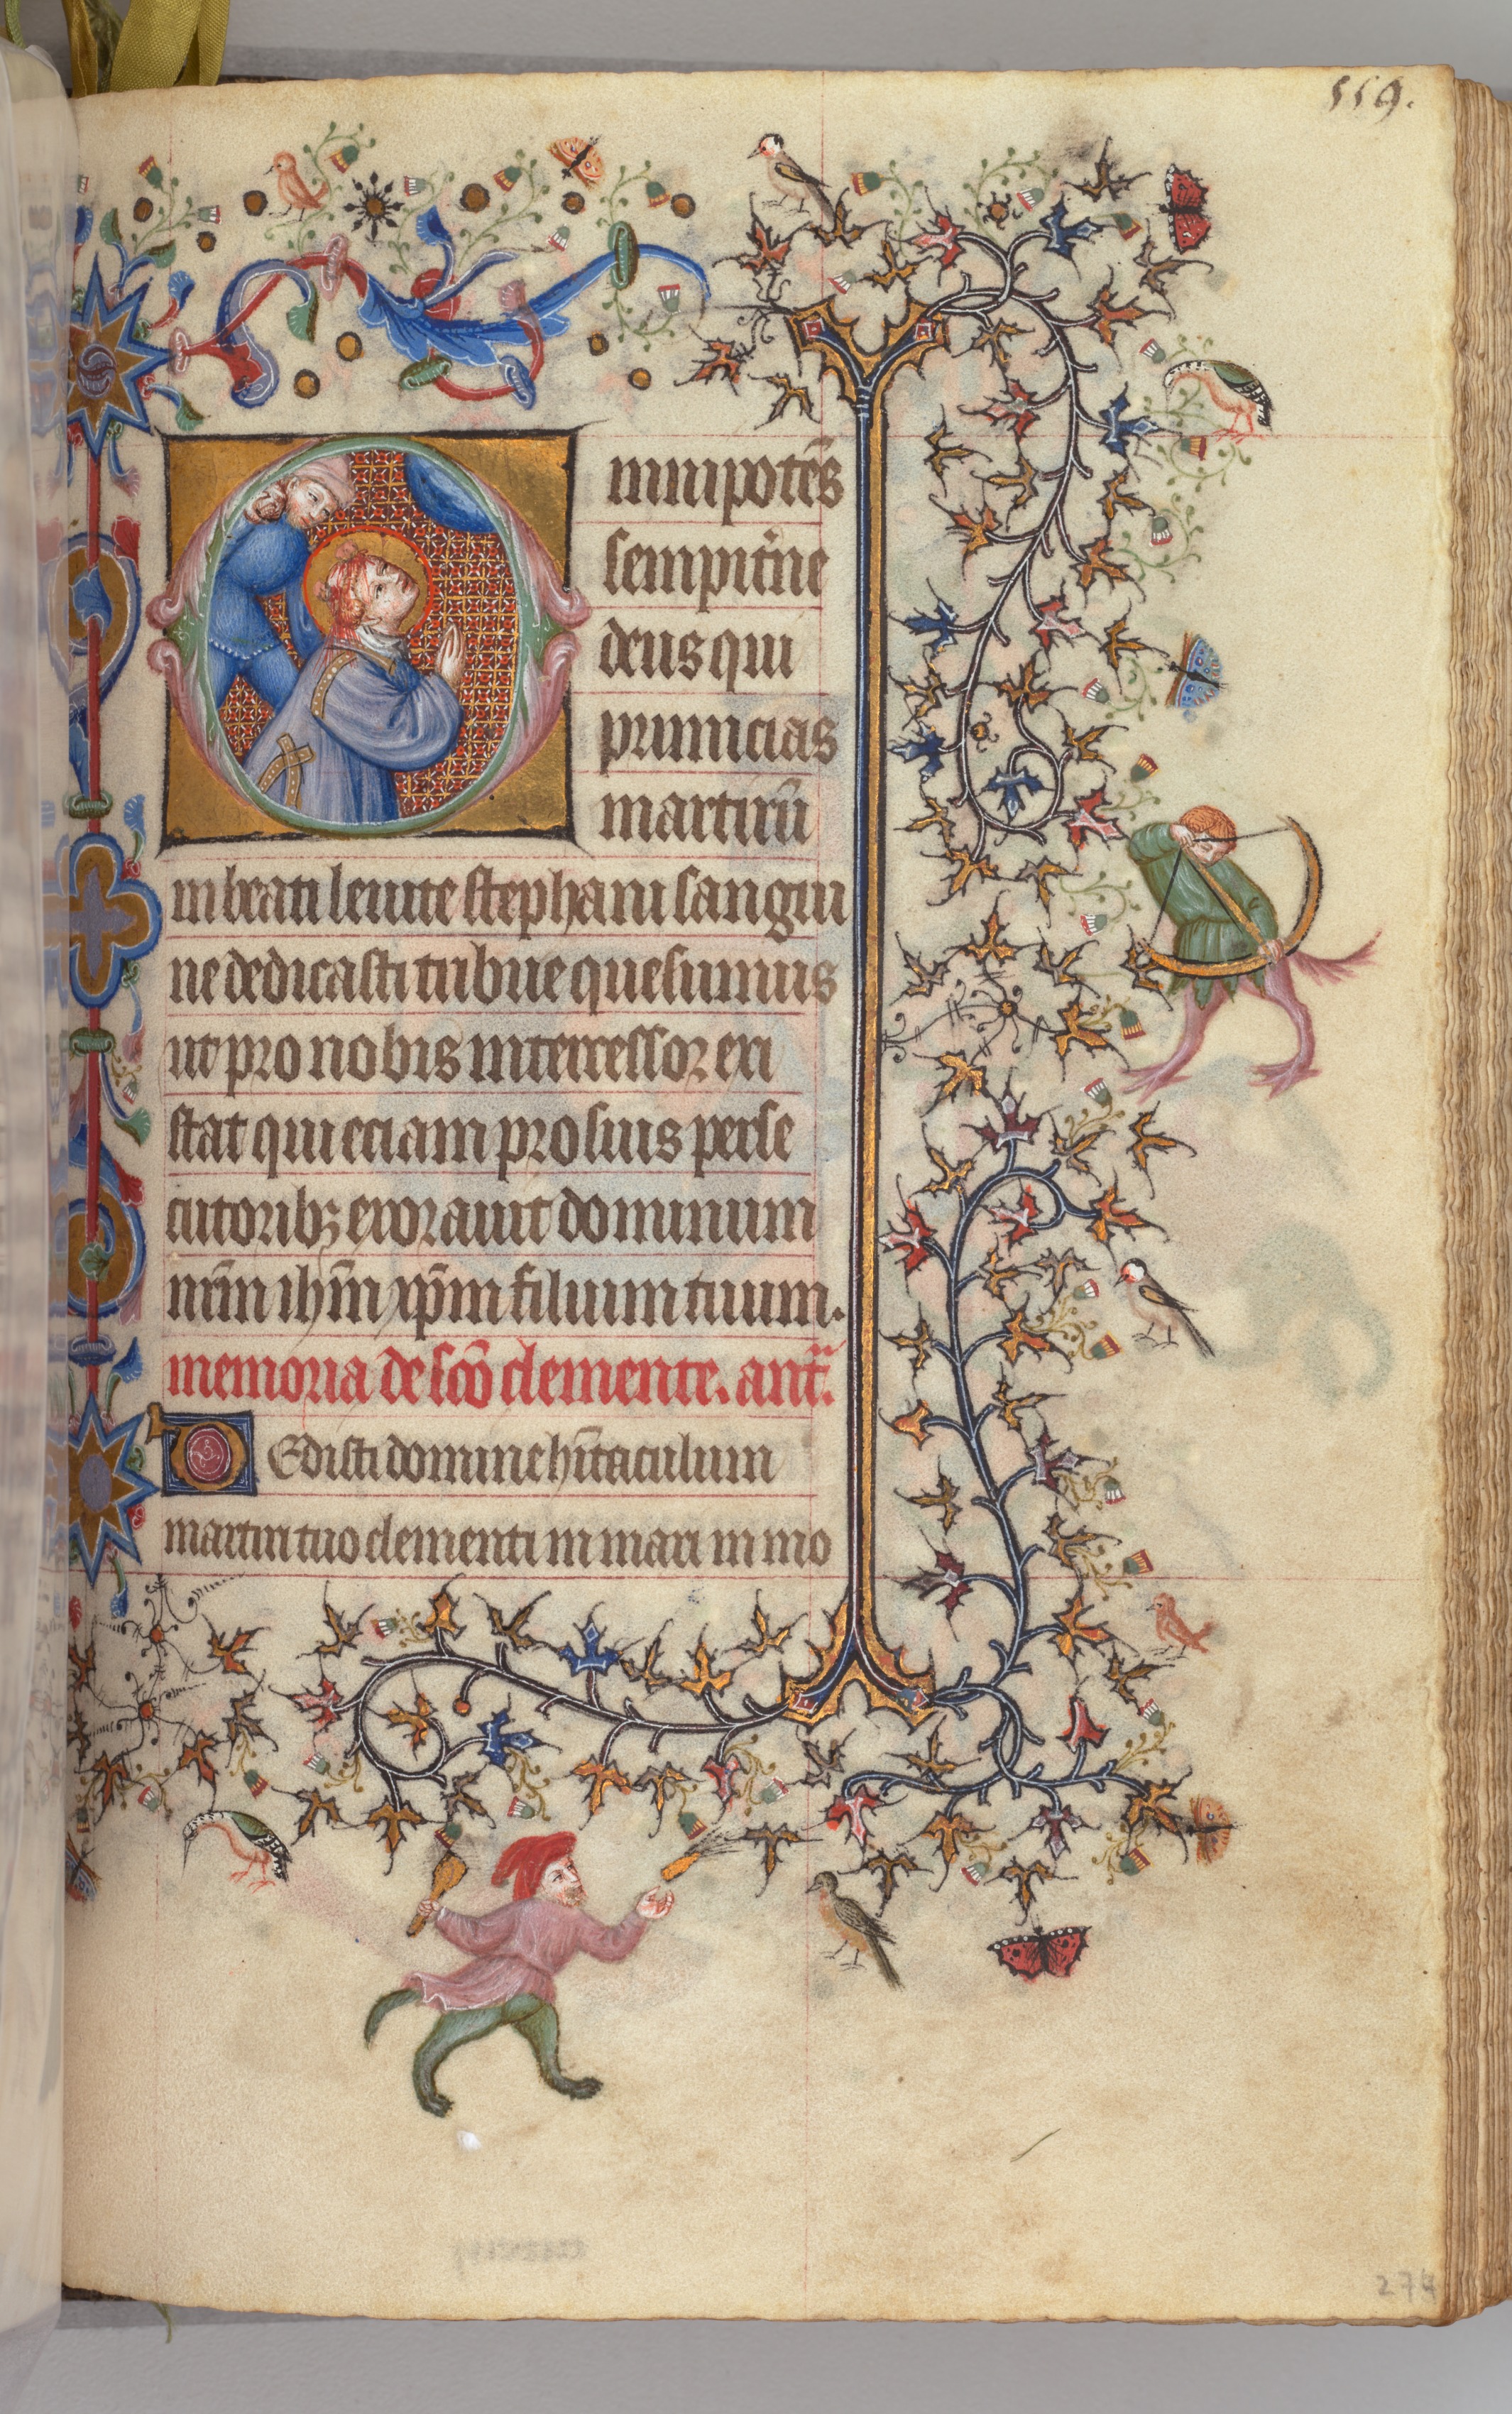 559.
Omnipotēs
sempit̄ne
deus qui
primicias
martirū
in beati leuite stephani sangui
ne dedicasti tribue quesumus
ut pro nobis intercessor exi
stat qui eciam pro suis perse
cutoribꝫ exorauit dominum
nr̄m ihm̄ xp̄m filium tuum.
memoria de sc̄o clemente. ant̄.
Dedisti domine hītaculum
martiri tuo clementi in mari in mo
274